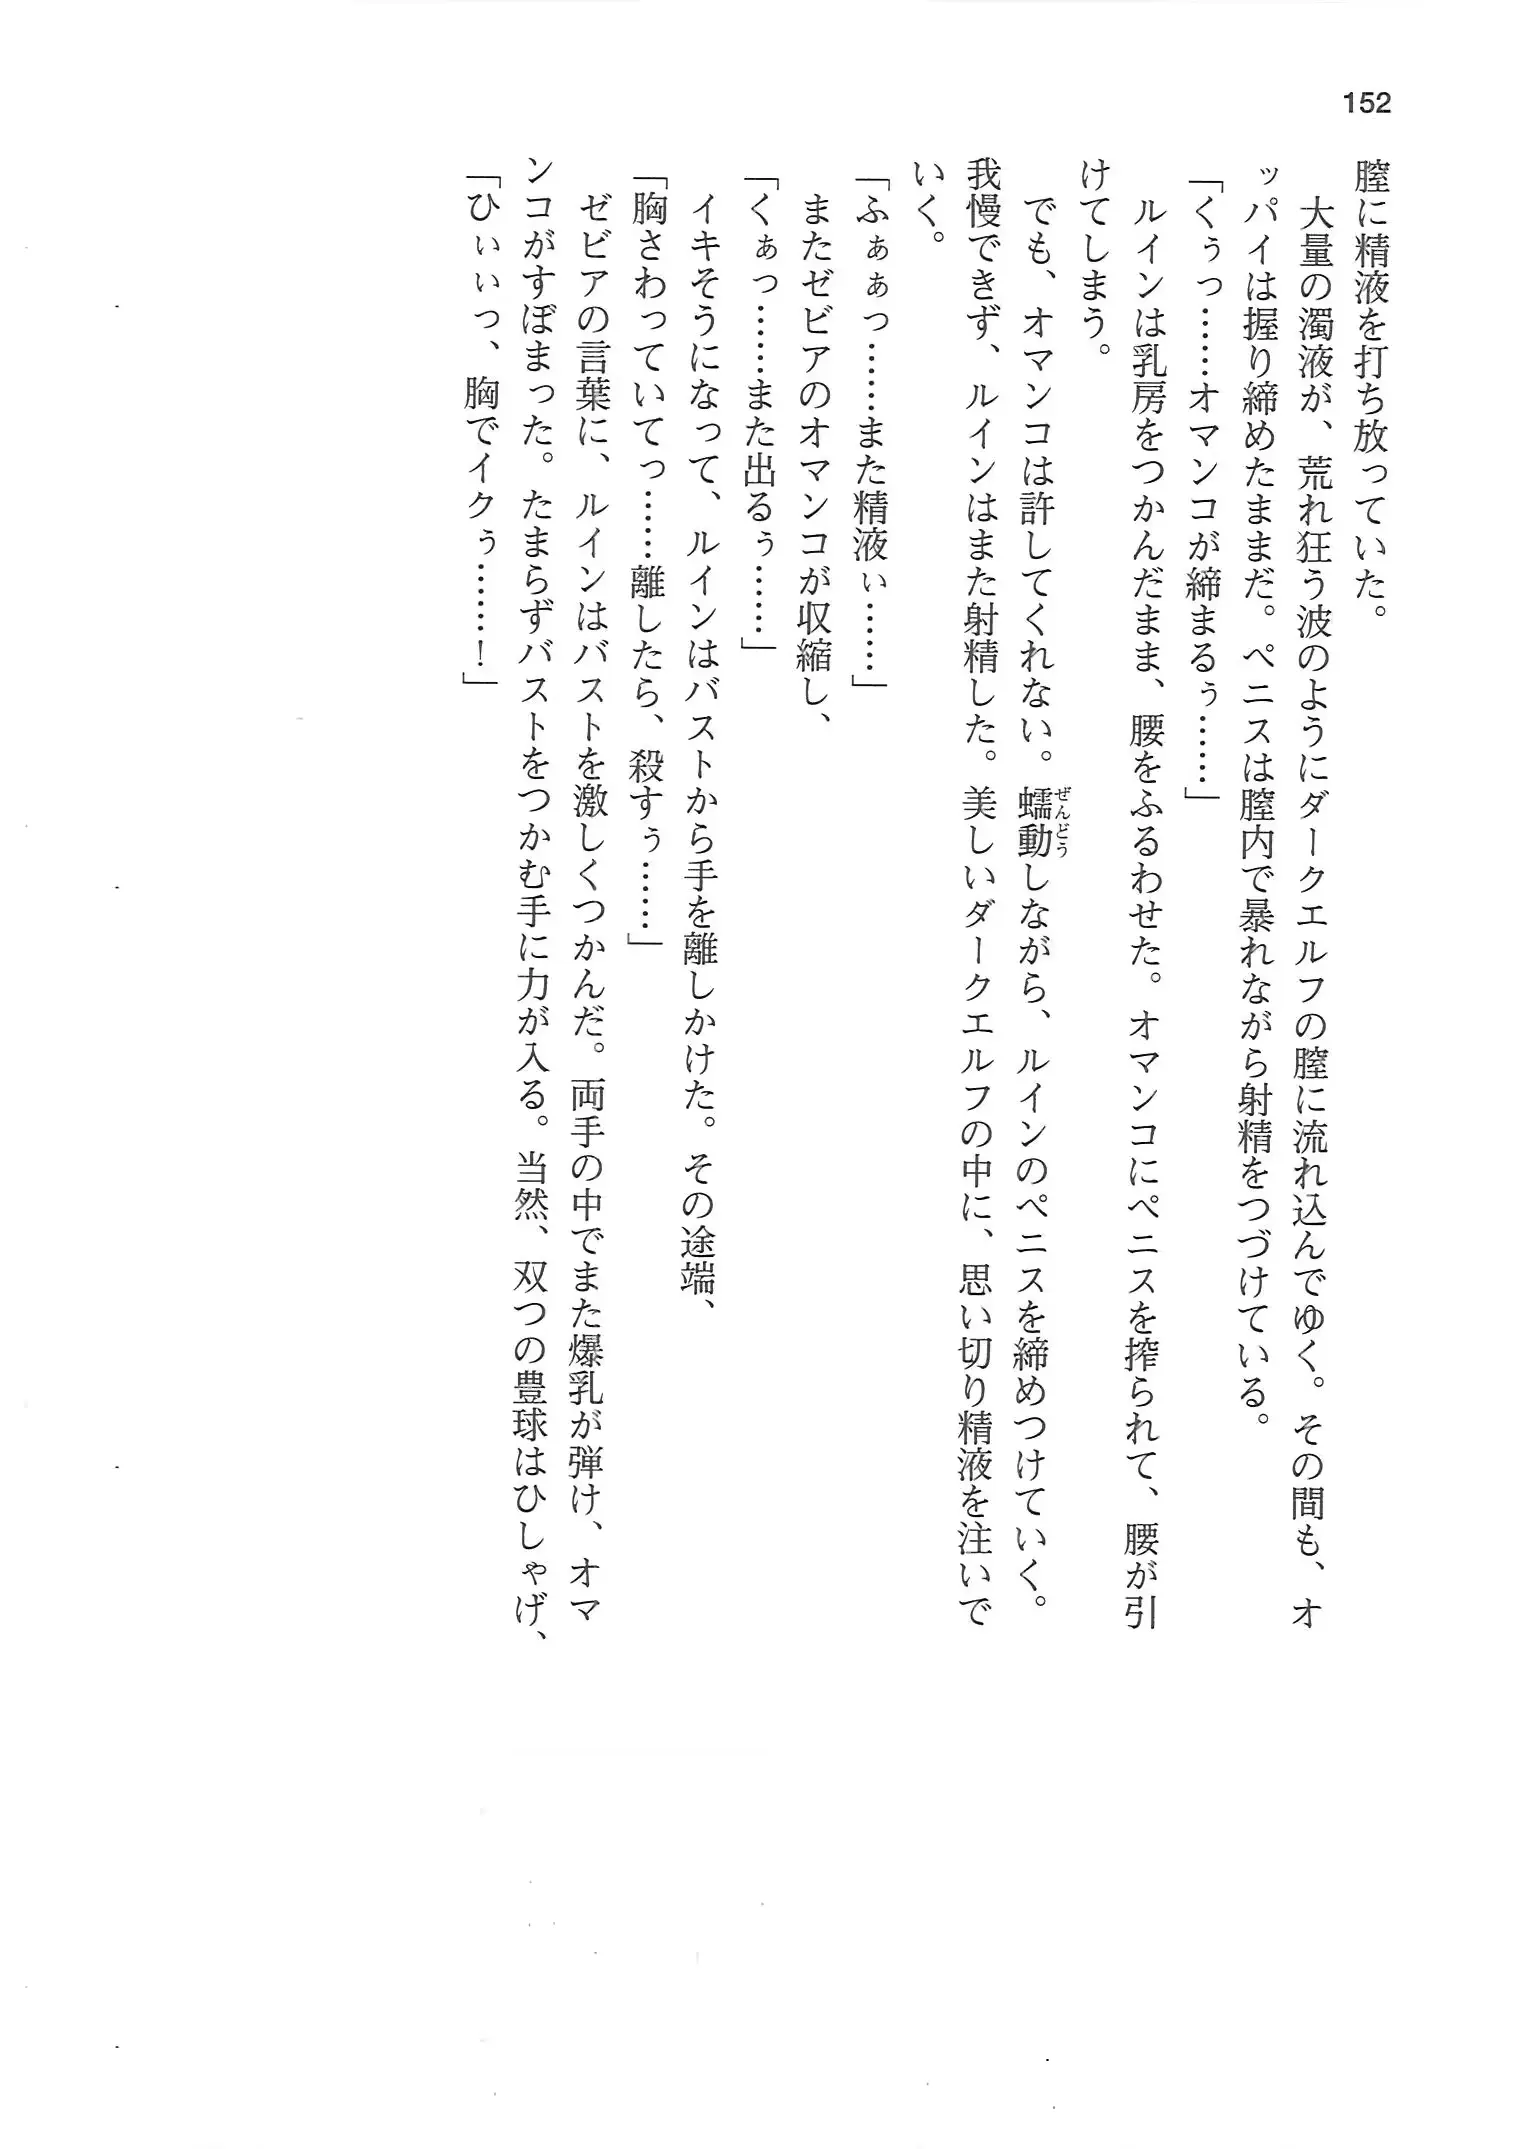 152
膣に精液を打ち放っていた。
大量の濁液が、荒れ狂う波のようにダークエルフの膣に流れ込んでゆく。その間も、オ
ッパイは握り締めたままだ。ペニスは膣内で暴れながら射精をつづけている。
「くぅっ……オマンコが締まるぅ……」
ルインは乳房をつかんだまま、腰をふるわせた。オマンコにペニスを搾られて、腰が引
けてしまう。
でも、オマンコは許してくれない。蠕動しながら、ルインのペニスを締めつけていく。
ぜんどう
我慢できず、ルインはまた射精した。美しいダークエルフの中に、思い切り精液を注いで
いく。
「ふぁぁっ……また精液ぃ……」
またゼビアのオマンコが収縮し、
「くぁっ……また出るぅ……」
イキそうになって、ルインはバストから手を離しかけた。その途端、
「胸さわっていてっ……離したら、殺すぅ……」
ゼビアの言葉に、ルインはバストを激しくつかんだ。両手の中でまた爆乳が弾け、オマ
ンコがすぼまった。たまらずバストをつかむ手に力が入る。当然、双つの豊球はひしゃげ、
「ひぃぃっ、胸でイクぅ……！」